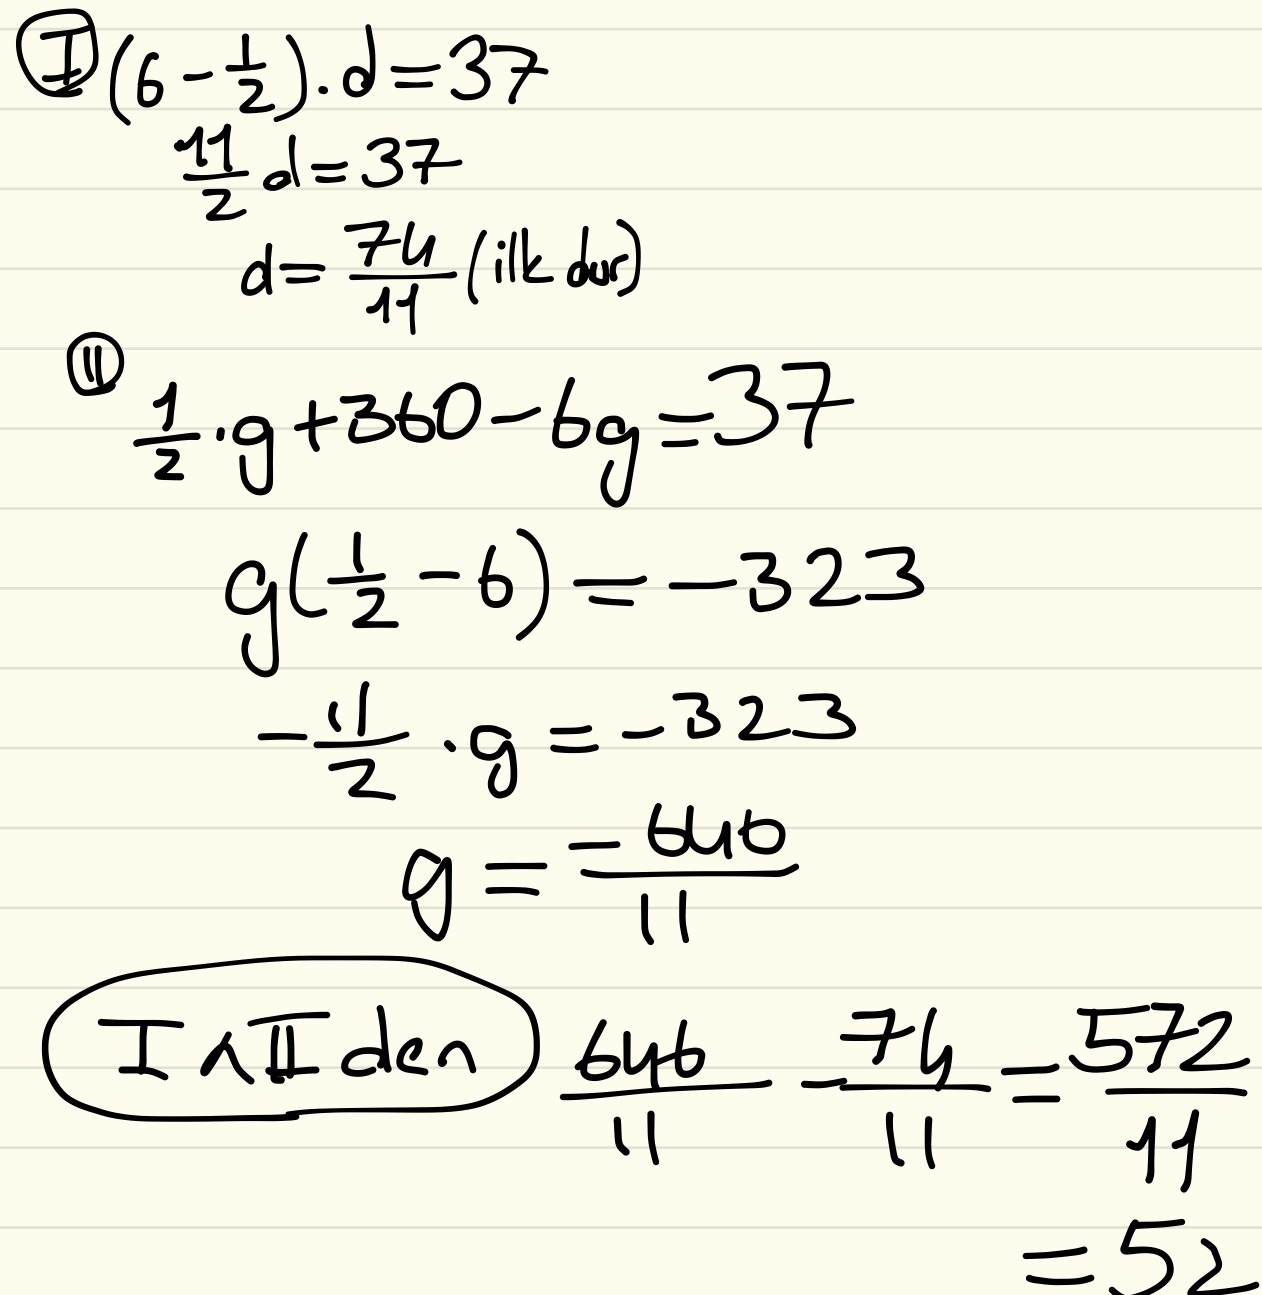 Ⓘ (6 - 1/2) . d = 37
11/2 d = 37
d = 74/11 (ilk dur)
Ⓘⓘ 1/2 . g + 360 - 6g = 37
g(1/2 - 6) = -323
-11/2 . g = -323
g = -646/11
I ∧ II den 646/11 - 74/11 = 572/11
= 52